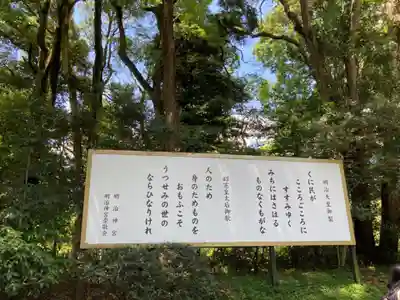 明治天皇御製
くに民が
こころごころに
すすみゆく
みちにはさはる
ものなくもがな
昭憲皇太后御歌
人のため
身のためものを
おもふこそ
うつせみの世の
ならひなりけれ
明治神宮
明治神宮崇敬会